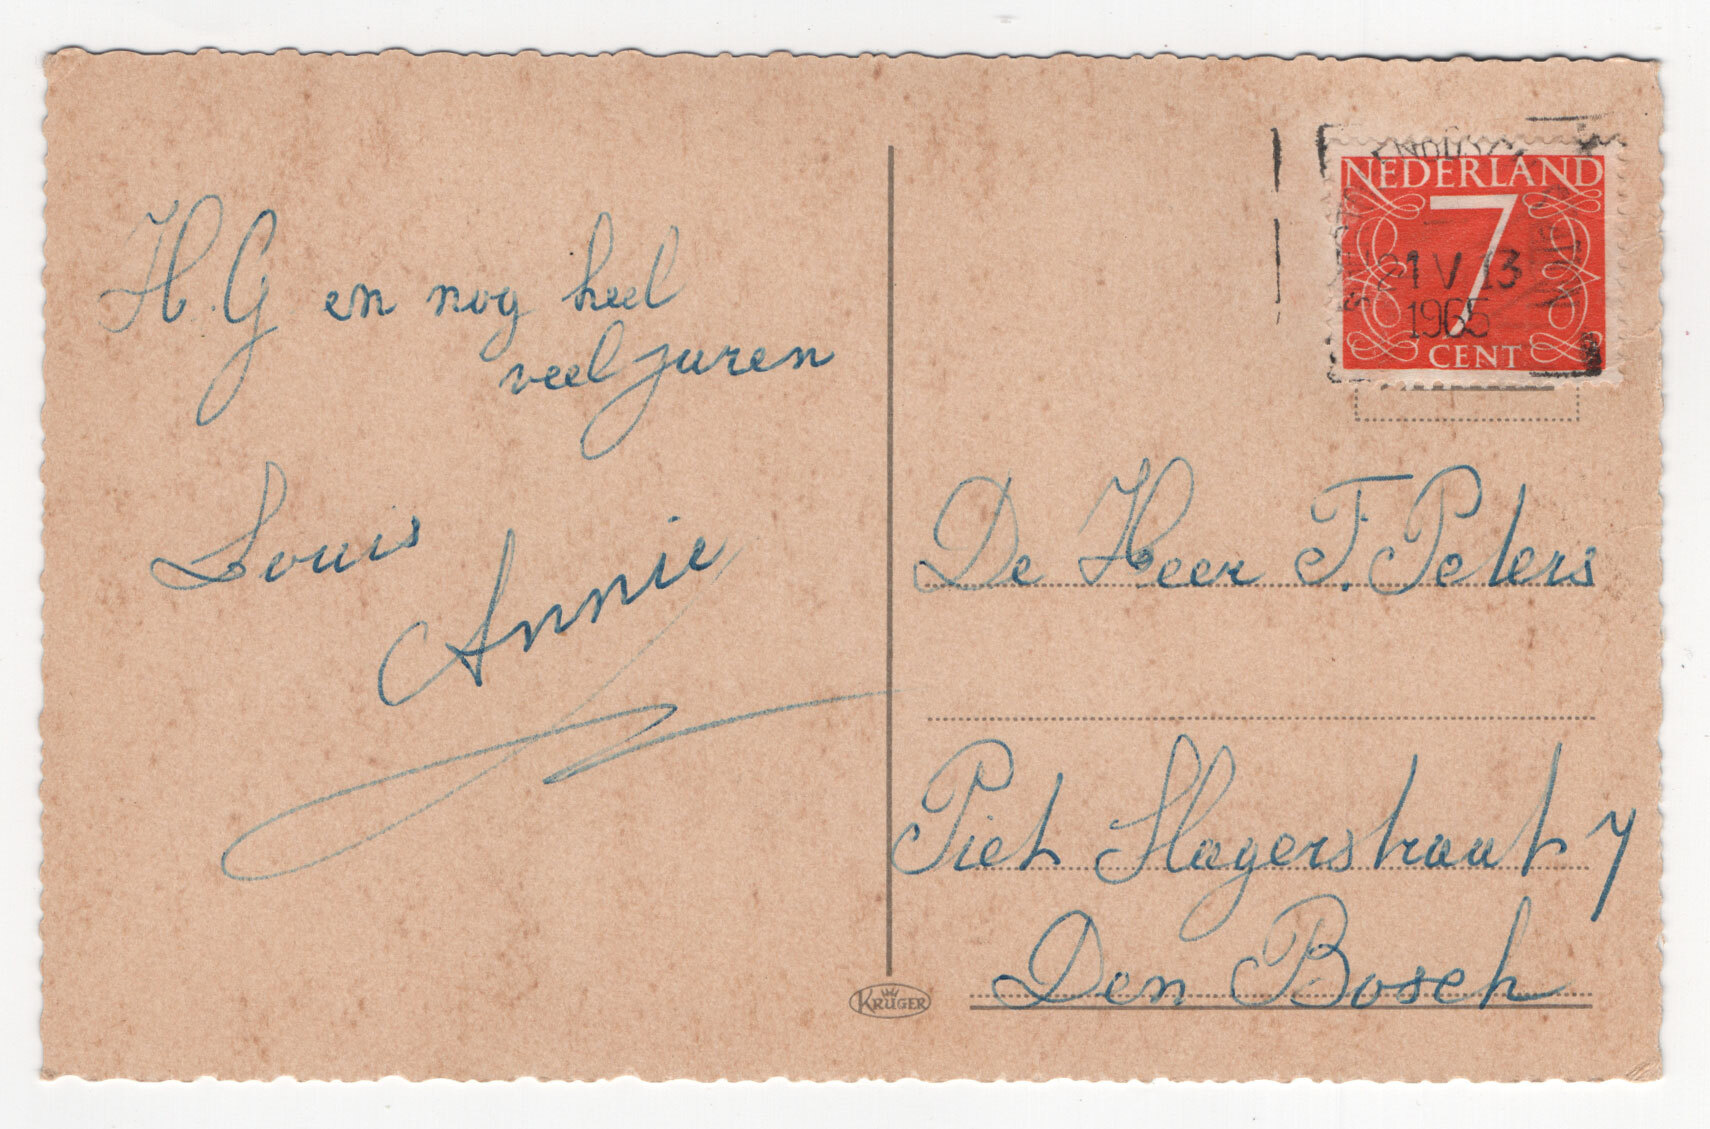 H.G en nog heel
veel jaren
Louis
Annie
NEDERLAND
7
CENT
21 V 13
1965
De Heer F. Peters
Piet Slagerstraat 7
Den Bosch
KRÜGER